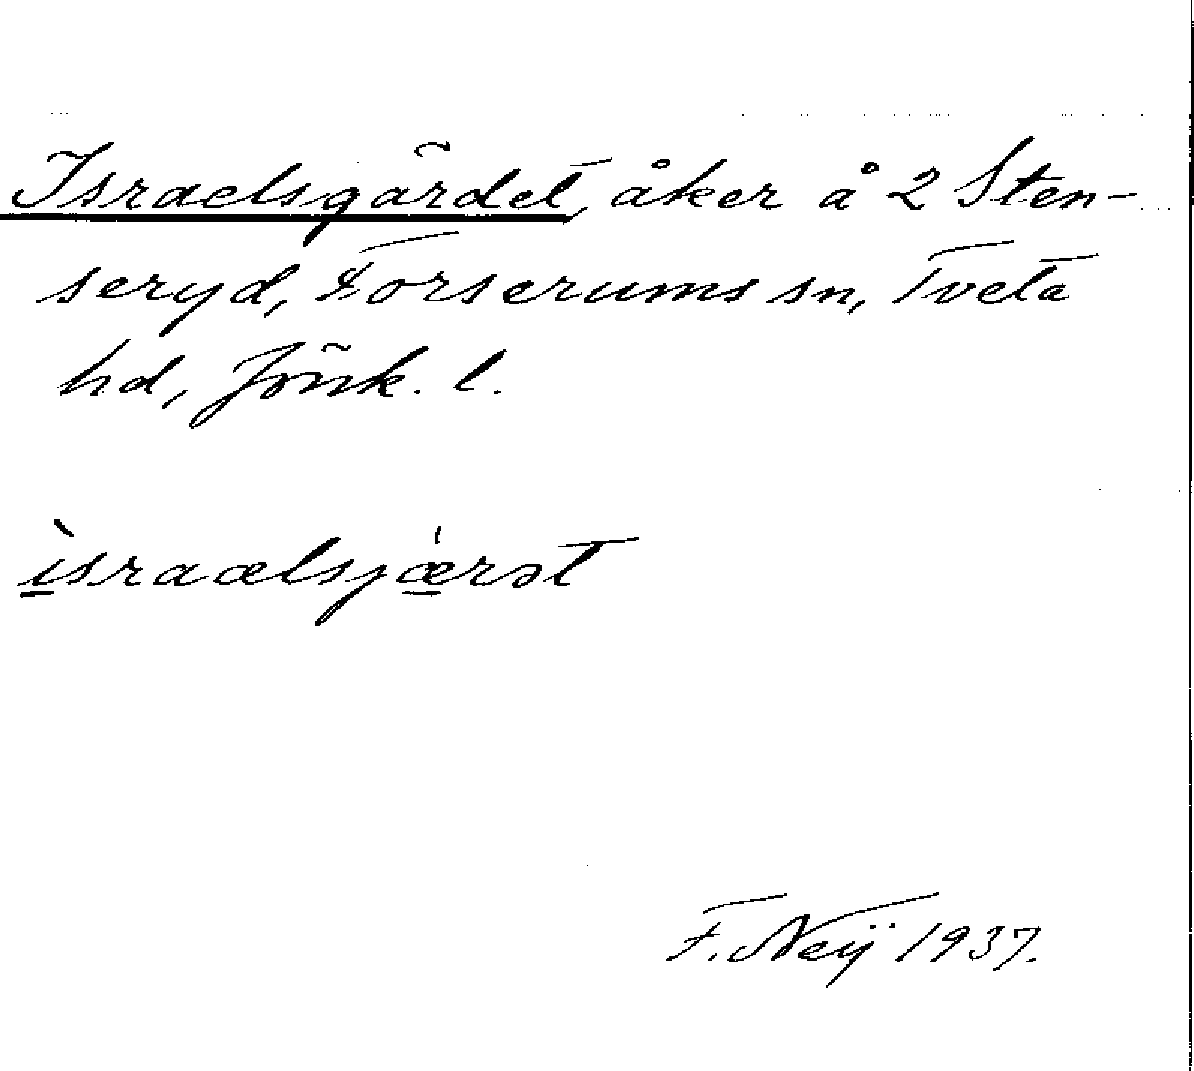 Israelsgärdet, åker å 2 Sten-
seryd, Forserums sn, Tveta
hd, Jönk. l.
ìsraælsjæ̍rət
F. Neij 1937.